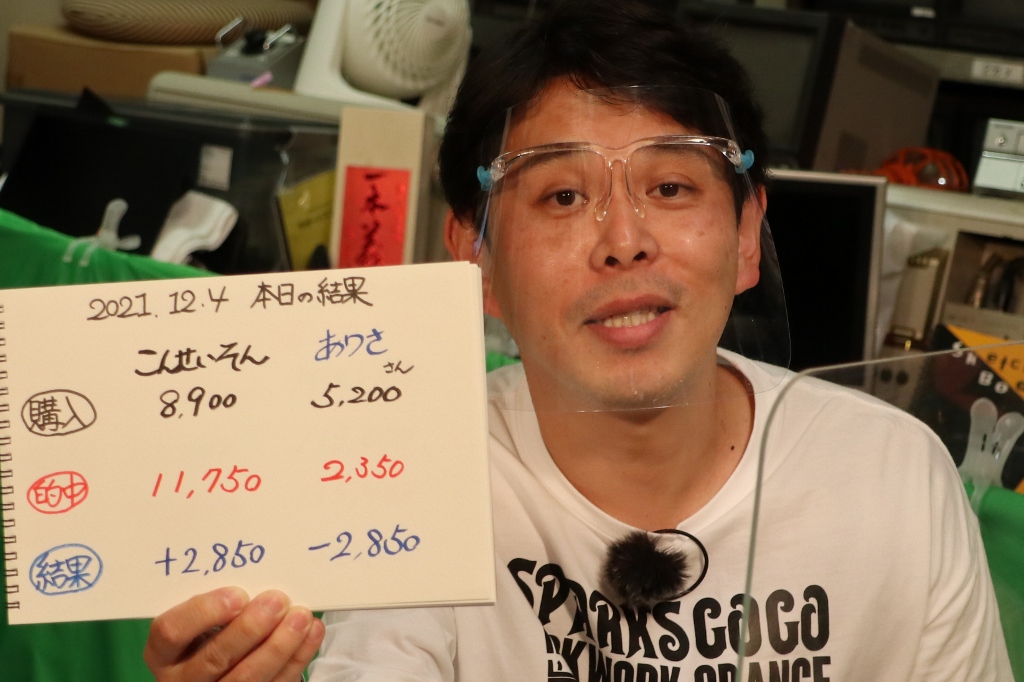 2021.12.4 本日の結果
こんせいそん ありさ
さん
購入 8,900 5,200
的中 11,750 2,350
結果 +2,850 -2,850
SPARKS GOGO
WORK ORANGE